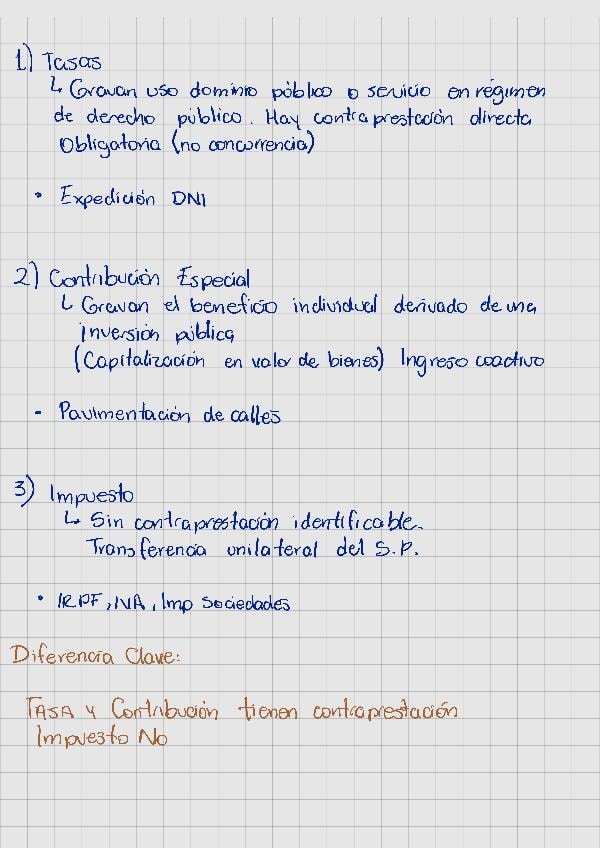 1) Tasas
↳ Gravan uso dominio público o servicio en régimen
de derecho público. Hay contraprestación directa
Obligatoria (no concurrencia)
• Expedición DNI
2) Contribución Especial
↳ Gravan el beneficio individual derivado de una
inversión pública
(Capitalización en valor de bienes) Ingreso coactivo
- Pavimentación de calles
3) Impuesto
↳ Sin contraprestación identificable.
Transferencia unilateral del S.P.
• IRPF, IVA, Imp Sociedades
Diferencia Clave:
TASA y Contribución tienen contraprestación
Impuesto No